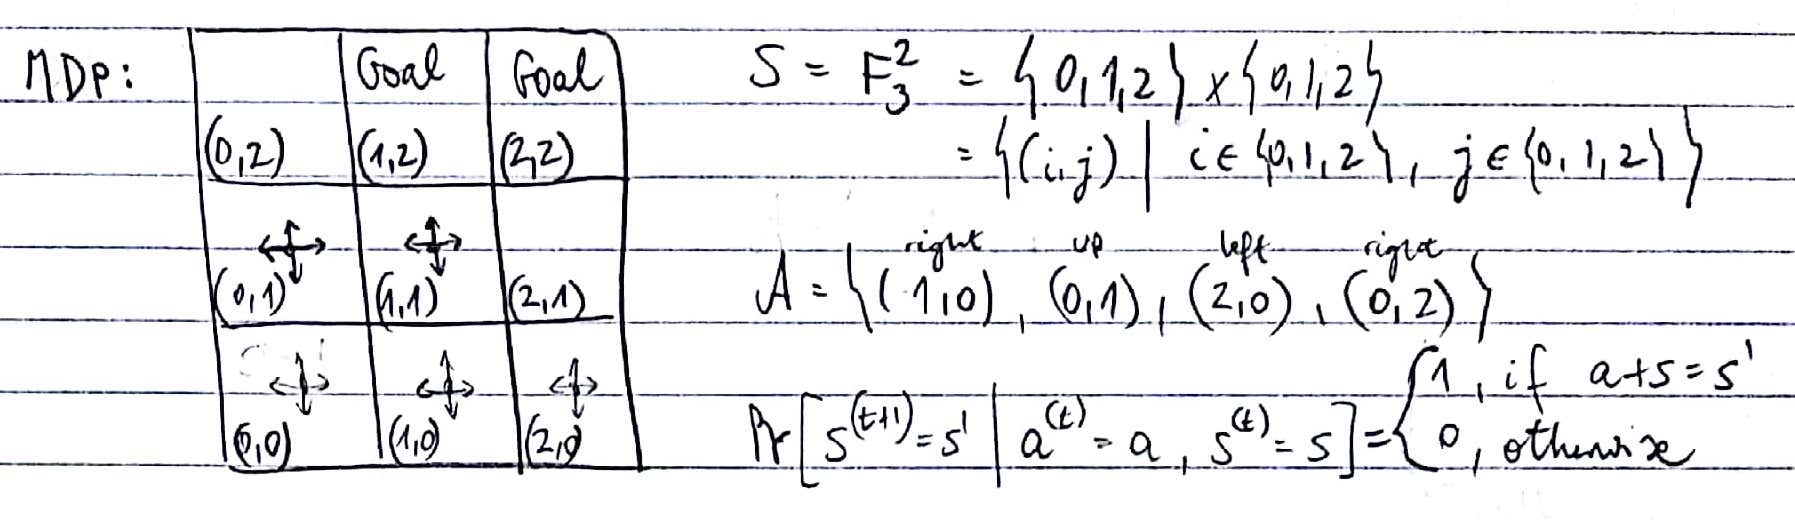 MDP:
Goal Goal
(0,2) (1,2) (2,2)
(0,1) (1,1) (2,1)
(0,0) (1,0) (2,0)
S = F₃² = {0,1,2} x {0,1,2}
= {(i,j) | i ∈ {0,1,2}, j ∈ {0,1,2}}
right up left right
A = {(1,0), (0,1), (2,0), (0,2)}
Pr[s^(t+1) = s' | a^(t) = a, s^(t) = s] = {1, if a+s = s'
0, otherwise